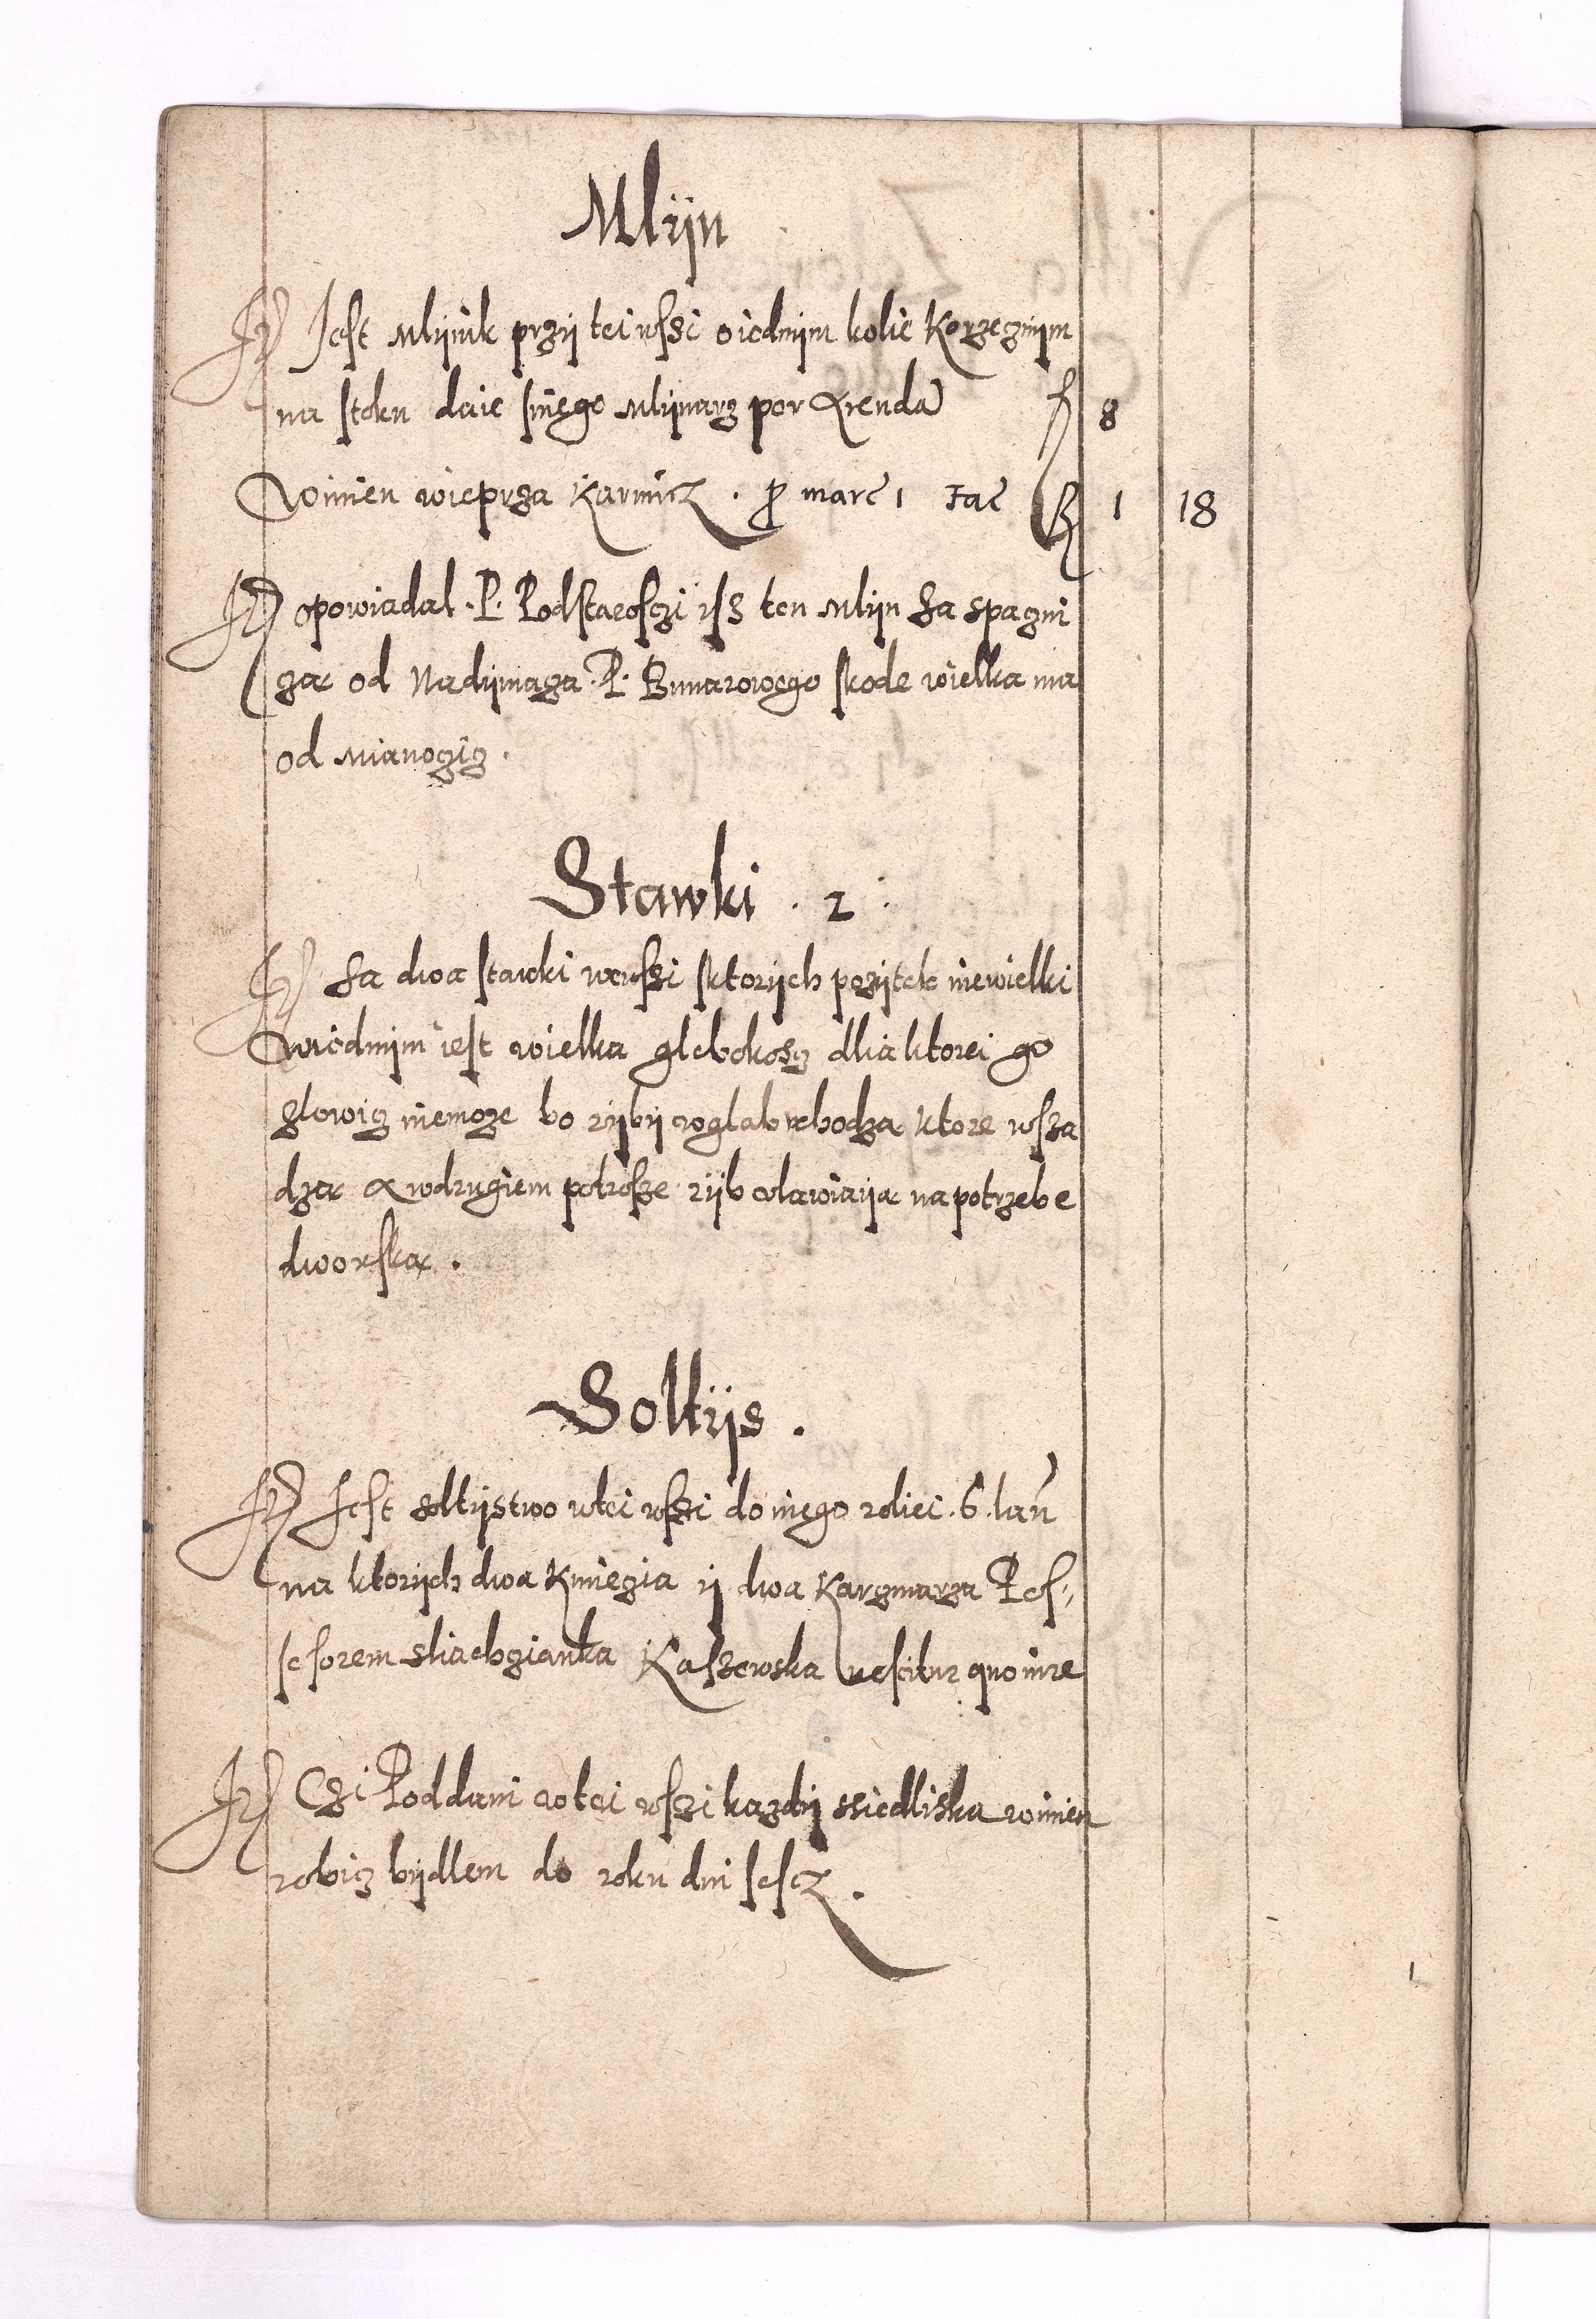 Mlijn
Jt Jest mlijnik przij tei wssi o iednijm kolie Korzecznijm
na stoku daie sniego mlijnarz por Arenda f 8
Winien wieprza karmicz . p marc 1 fac R 1 18
Jt opowiadal . P. Podstarosczi yss ten mlijn za spagni
za od Nadijmaga . P. Bunarowego skode wielka ma
od mianogig .
Stawki . 2 .
Jt Sa dwa stawki wewssi sktorijch pozijtek niewielki
wiednijm iest wielka glebokoscz dlia ktorei go
zlowicz niemoze bo rijbij wglab wchodza ktore wsza
dza A wdrugiem potrosze rijb wlawiaija na potrzebe
dworska .
Soltijs .
Jt Jest soltijstwo wtei wssi do niego roliei . 6 . lan
na ktorijch dwa kmiecia ij dwa karczmarza Pos,
sesorem sliachcianka Kaszewska uescitur quo iure
Jt Czi Poddani wtei wssi kazdij ssiedliska winien
robicz bijdlem do roku dni sescz .